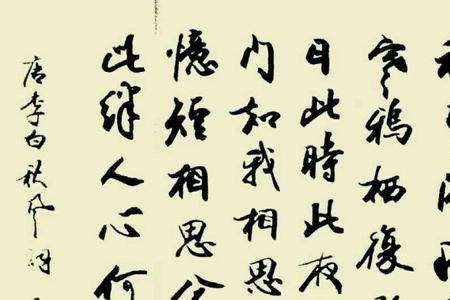 寒鸦栖復
日此時此夜
门知我相思
憶短相思兮
此绊人心何
唐李白秋风词